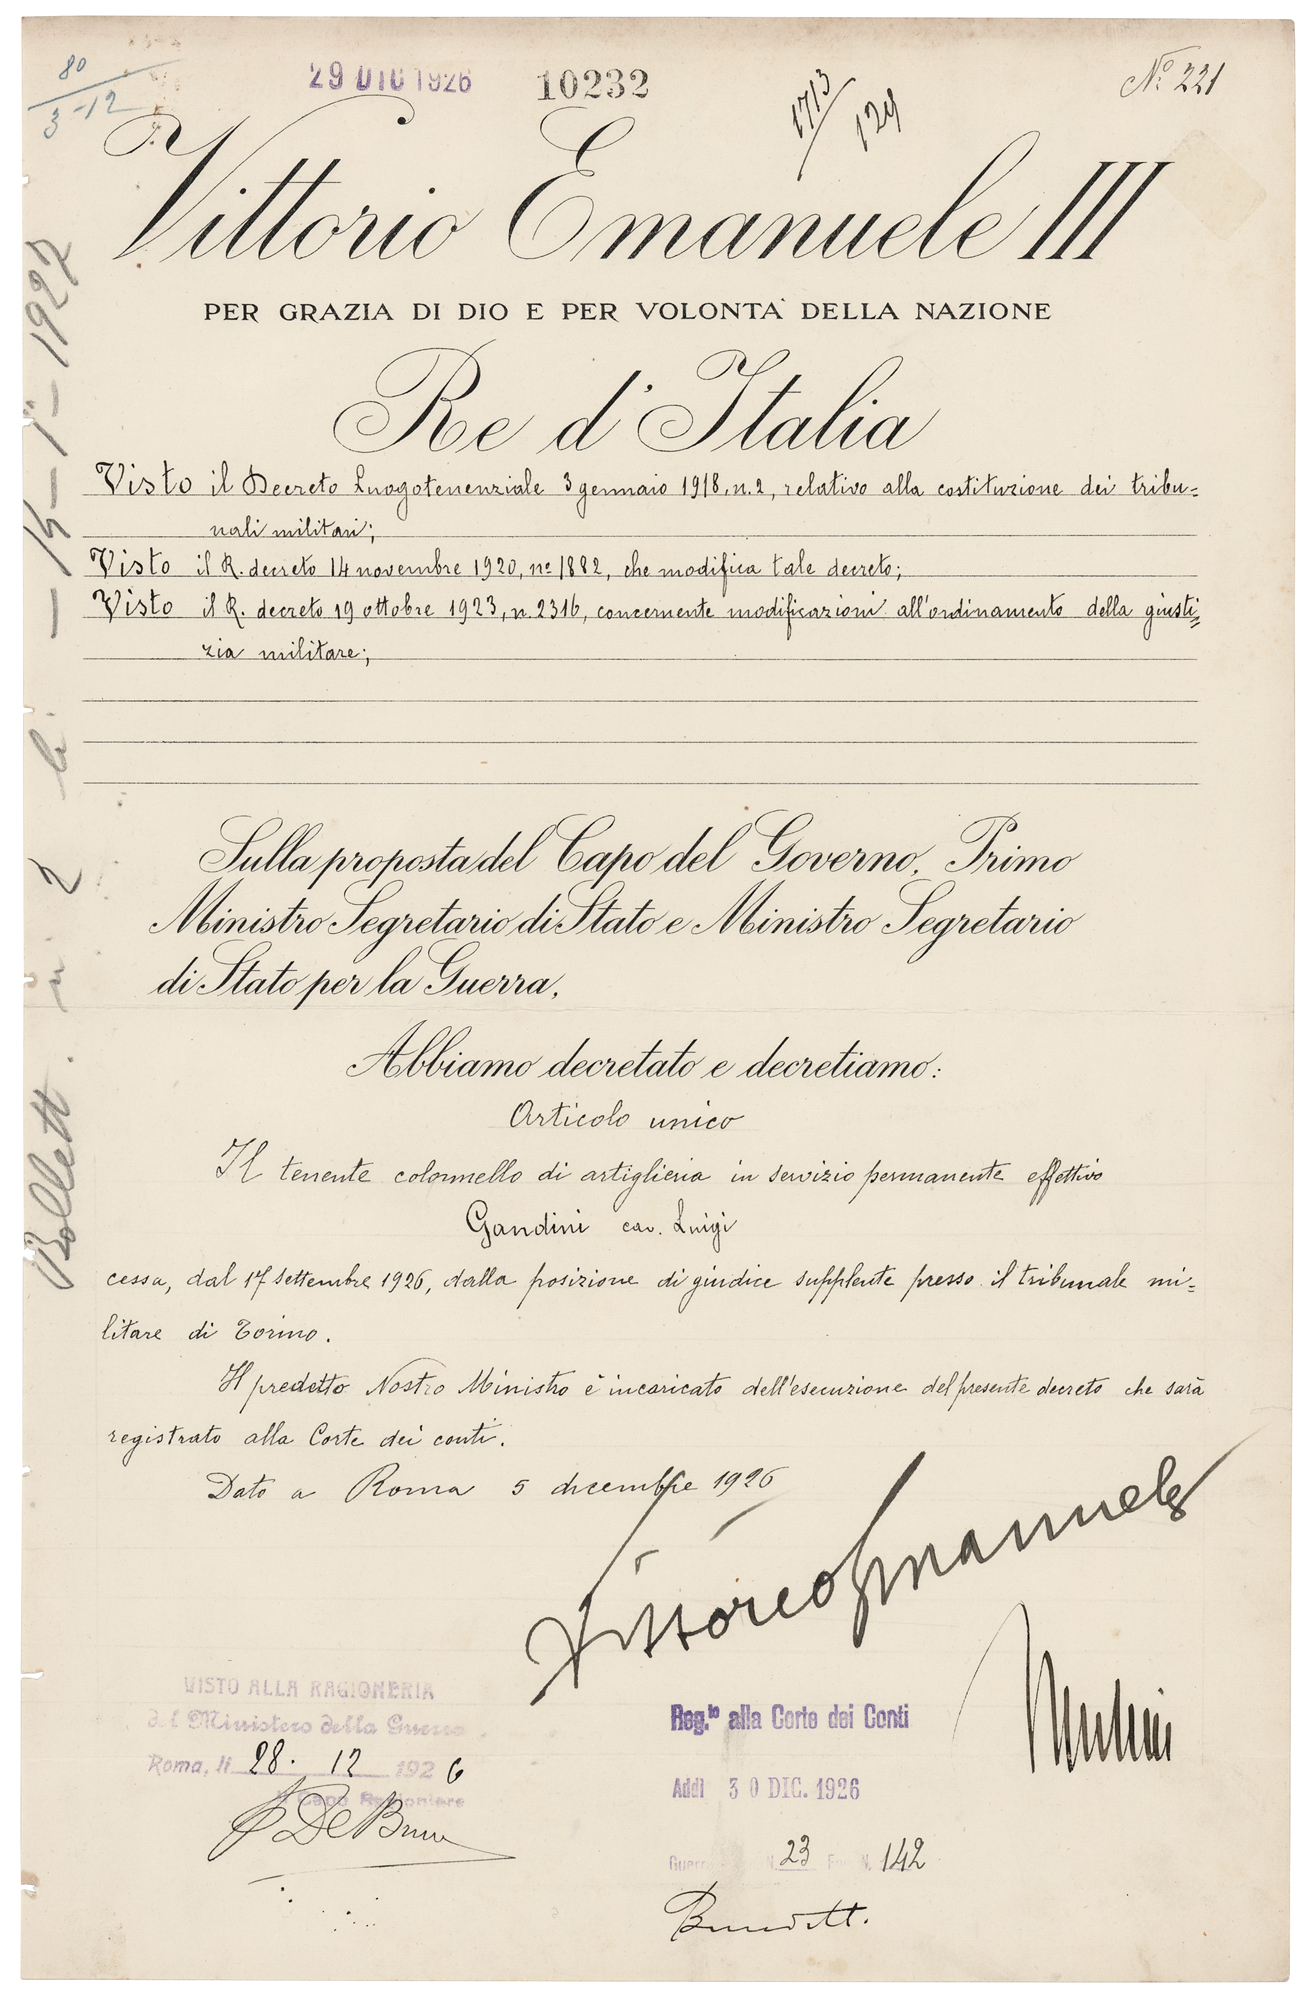 80
3-12
29 DIC 1926 10232
1713/124
Nº 221
Vittorio Emanuele III
PER GRAZIA DI DIO E PER VOLONTA` DELLA NAZIONE
Re d'Italia
Visto il Decreto Luogotenenziale 3 gennaio 1918, n. 2, relativo alla costituzione dei tribu=
nali militari;
Visto il R. decreto 14 novembre 1920, nº 1882, che modifica tale decreto;
Visto il R. decreto 19 ottobre 1923, n. 2316, concernente modificazioni all'ordinamento della giusti=
zia militare;
Sulla proposta del Capo del Governo, Primo
Ministro Segretario di Stato e Ministro Segretario
di Stato per la Guerra,
Abbiamo decretato e decretiamo:
Articolo unico
Il tenente colonnello di artiglieria in servizio permanente effettivo
Gandini cav. Luigi
cessa, dal 17 settembre 1926, dalla posizione di giudice supplente presso il tribunale mi=
litare di Torino.
Il predetto Nostro Ministro è incaricato dell'esecuzione del presente decreto che sarà
registrato alla Corte dei conti.
Dato a Roma 5 dicembre 1926
Vittorio Emanuele
Mussolini
VISTO ALLA RAGIONERIA
del Ministero della Guerra
Roma, li 28. 12 1926
Il Capo Ragioniere
Reg.to alla Corte dei Conti
Addì 30 DIC. 1926
Guerra 23 142
Bollett. n. 2 li
1927